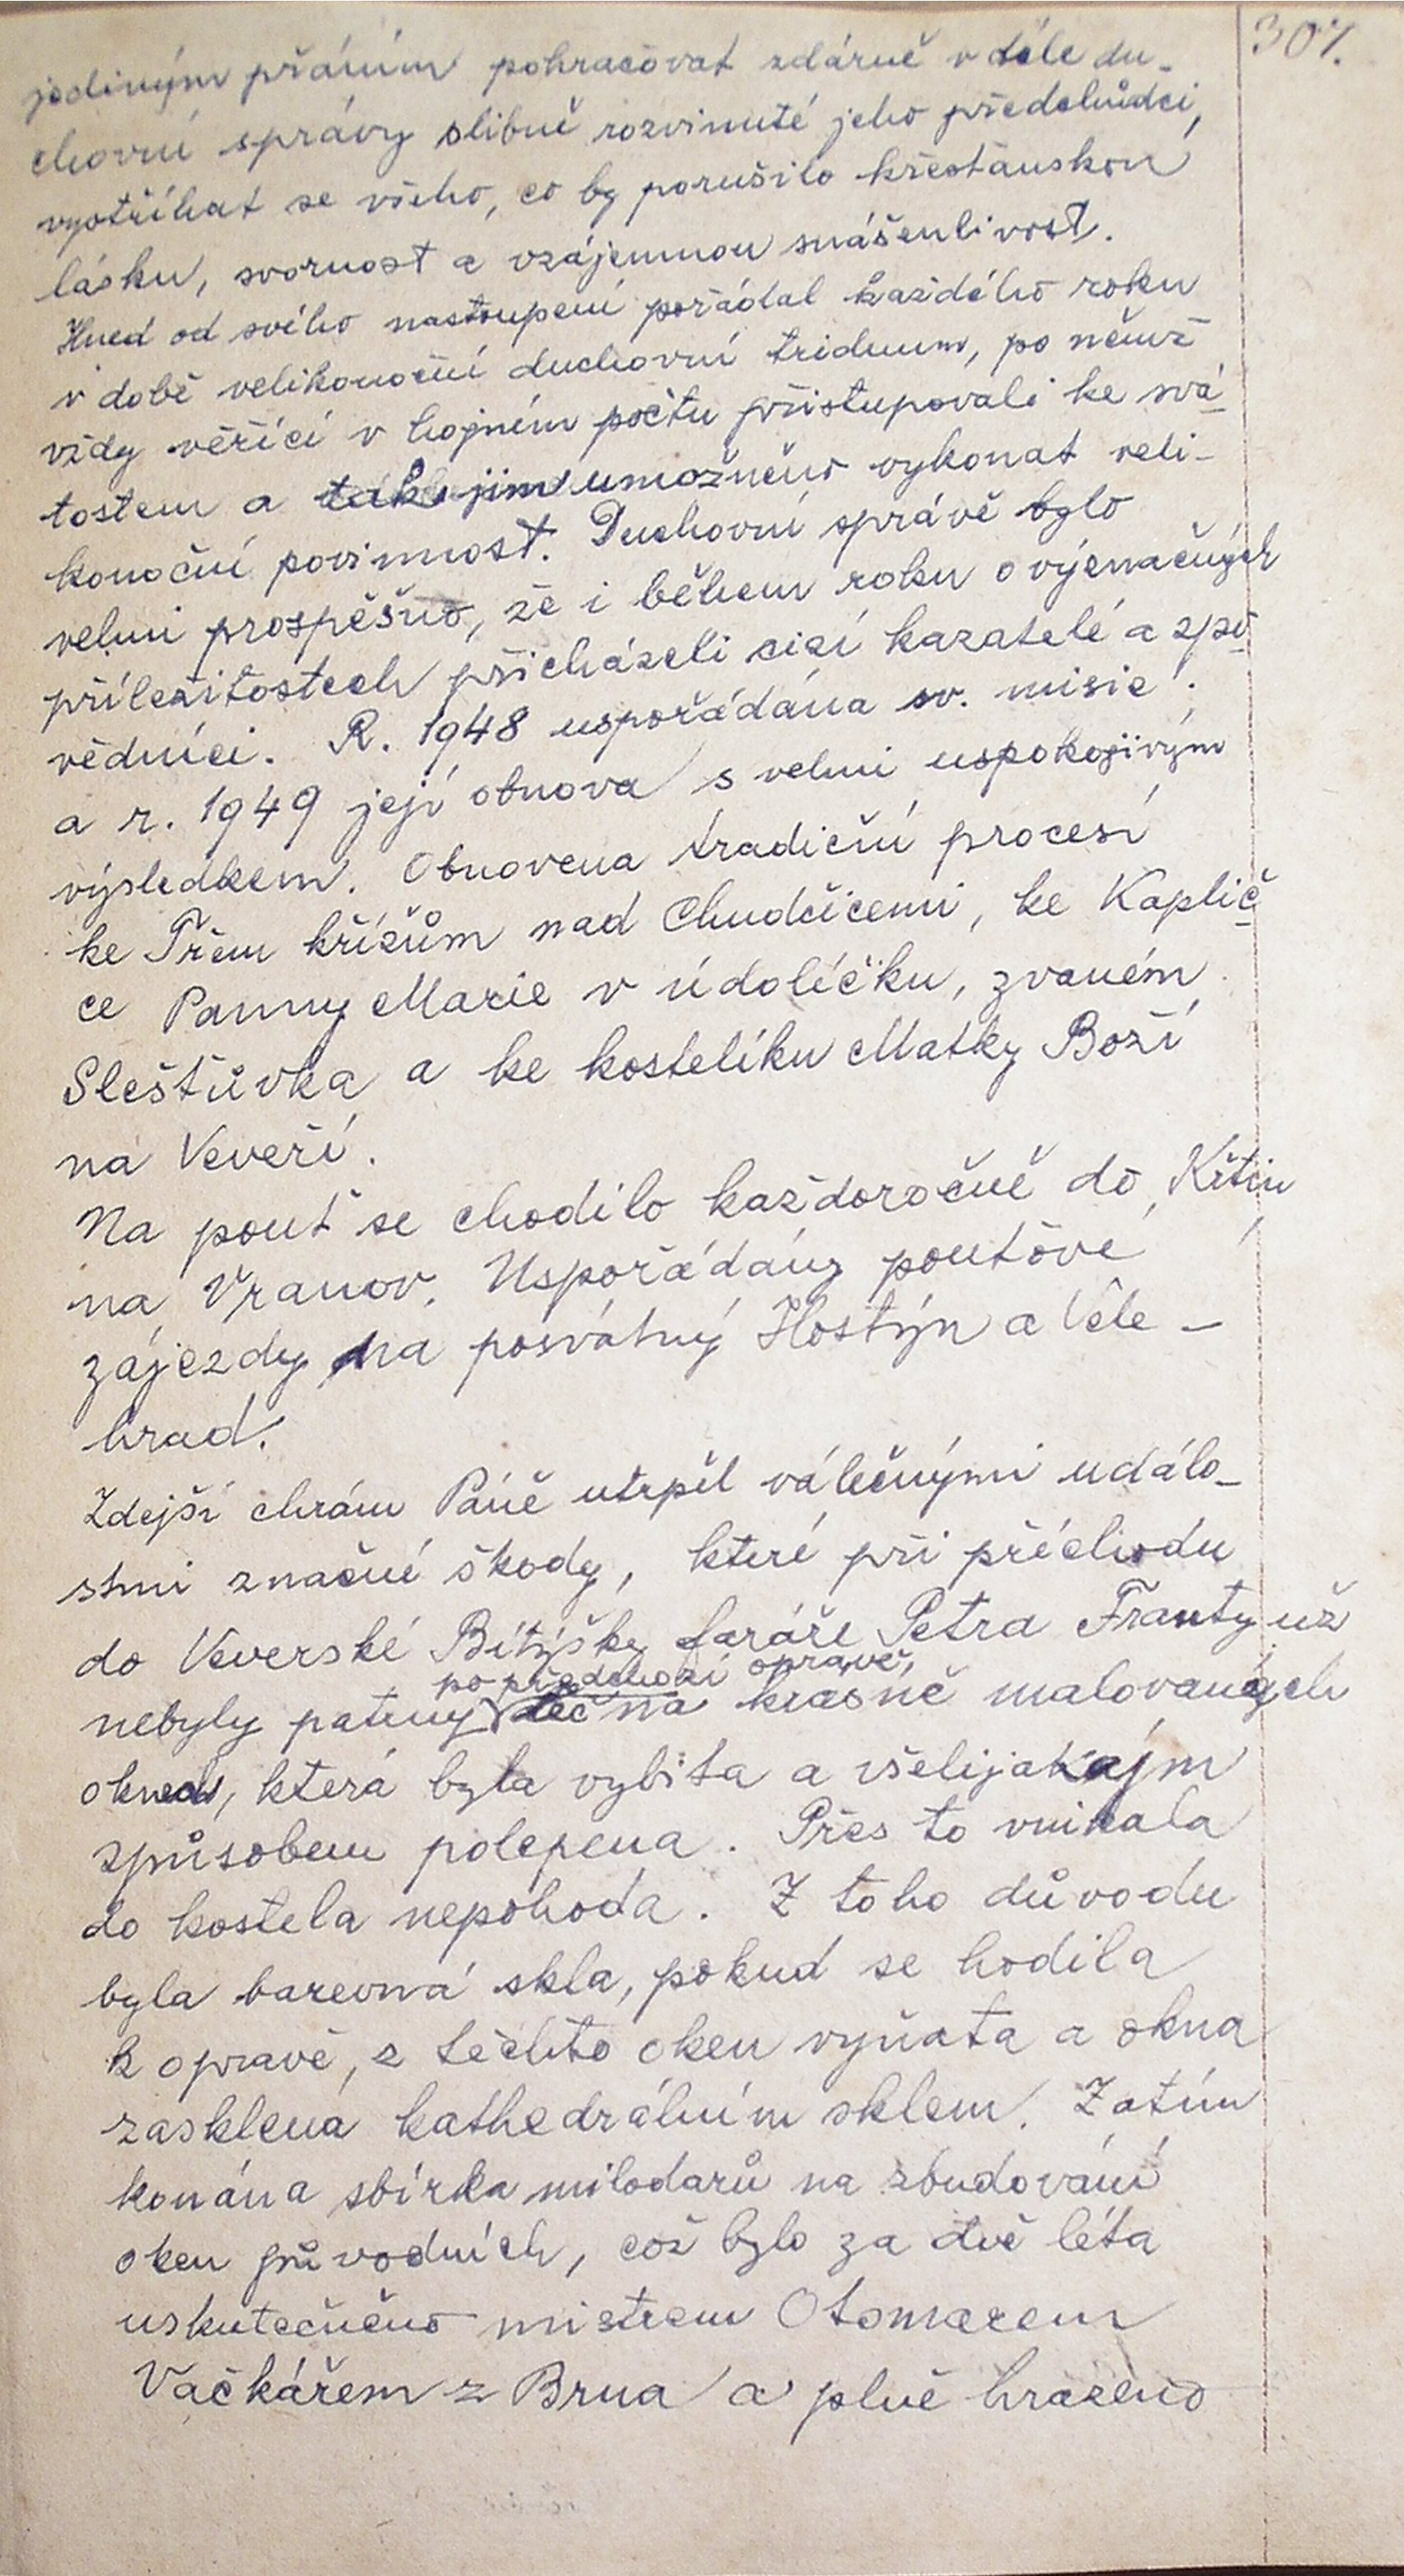 307.
jediným přáním pokračovat zdárně v díle du-
chovní správy slibně rozvinuté jeho předchůdci,
vystříhat se všeho, co by porušilo křesťanskou
lásku, svornost a vzájemnou snášenlivost.
Hned od svého nastoupení pořádal každého roku
v době velikonoční duchovní triduum, po němž
vždy věřící v hojném počtu přistupovali ke svá-
tostem a tak jim umožněno vykonat veli-
konoční povinnost. Duchovní správě bylo
velmi prospěšno, že i během roku o význačných
příležitostech přicházeli cizí kazatelé a zpo-
vědníci. R. 1948 uspořádána sv. misie
a r. 1949 její obnova s velmi uspokojivým
výsledkem. Obnovena tradiční procesí
ke Třem křížům nad Chudčicemi, ke Kaplič-
ce Panny Marie v údolíčku, zvaném
Sleštůvka a ke kostelíku Matky Boží
na Veveří.
Na pouť se chodilo každoročně do Křtin,
na Vranov. Uspořádány poutové
zájezdy na posvátný Hostýn a Vele-
hrad.
Zdejší chrám Páně utrpěl válečnými událo-
stmi značné škody, které při příchodu
do Veverské Bítýšky faráře Petra Franty už
po předchozí opravě,
nebyly patrny leč na krásně malovaných
oknech, která byla vybita a všelijakým
způsobem polepena. Přes to vnikala
do kostela nepohoda. Z toho důvodu
byla barevná skla, pokud se hodila
k opravě, z těchto oken vyňata a okna
zasklena kathedrálním sklem. Zatím
konána sbírka milodarů na zbudování
oken původních, což bylo za dvě léta
uskutečněno mistrem Otomarem
Vačkářem z Brna a plně hrazeno